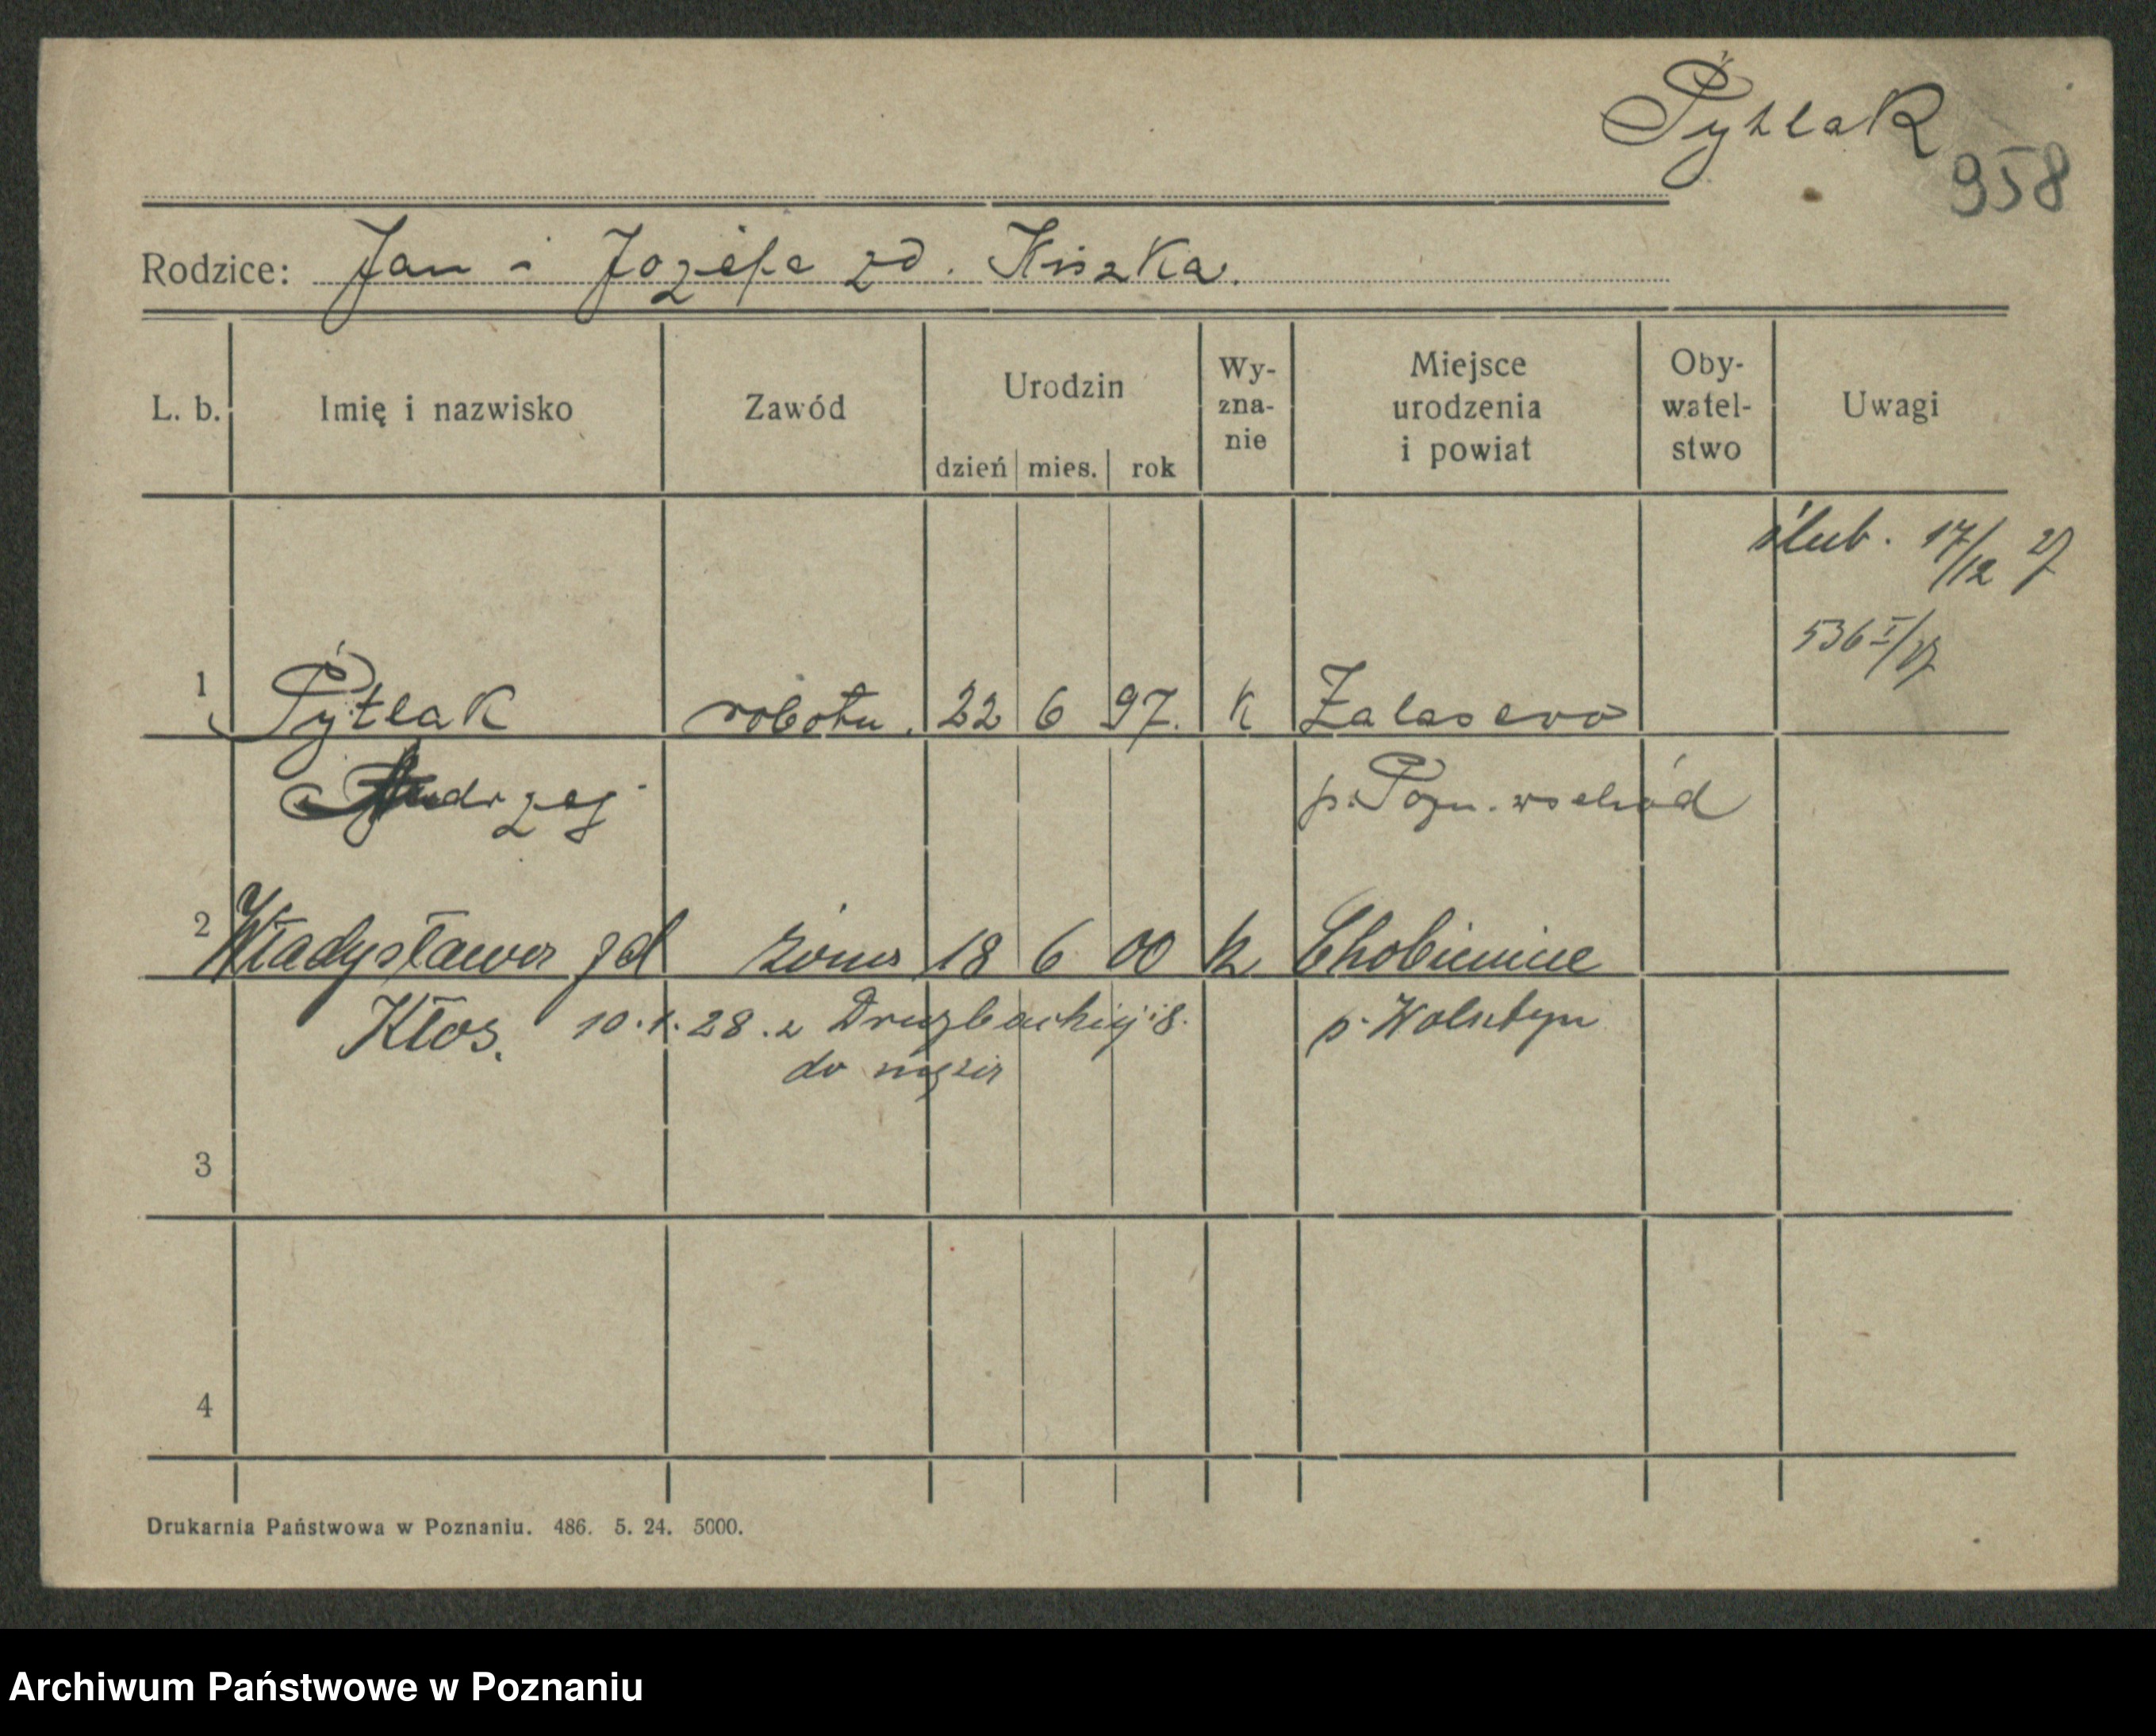 Pytlak
958
Rodzice: Jan i Józefa zd. Kiszka.
L. b. Imię i nazwisko Zawód Urodzin dzień mies. rok Wy-zna-nie Miejsce urodzenia i powiat Oby-watel-stwo Uwagi
ślub. 17/12 27
536 I/27
1 Pytlak robotn. 22 6 97. K Zalasewo
Andrzej p. Pozn. wschód
2 Władysława zd żona 18 6 00 k Chobienice
Kłos. 10.1.28. z Drużbackiej 8. p. Wolsztyn
do męża
3
4
Drukarnia Państwowa w Poznaniu. 486. 5. 24. 5000.
Archiwum Państwowe w Poznaniu